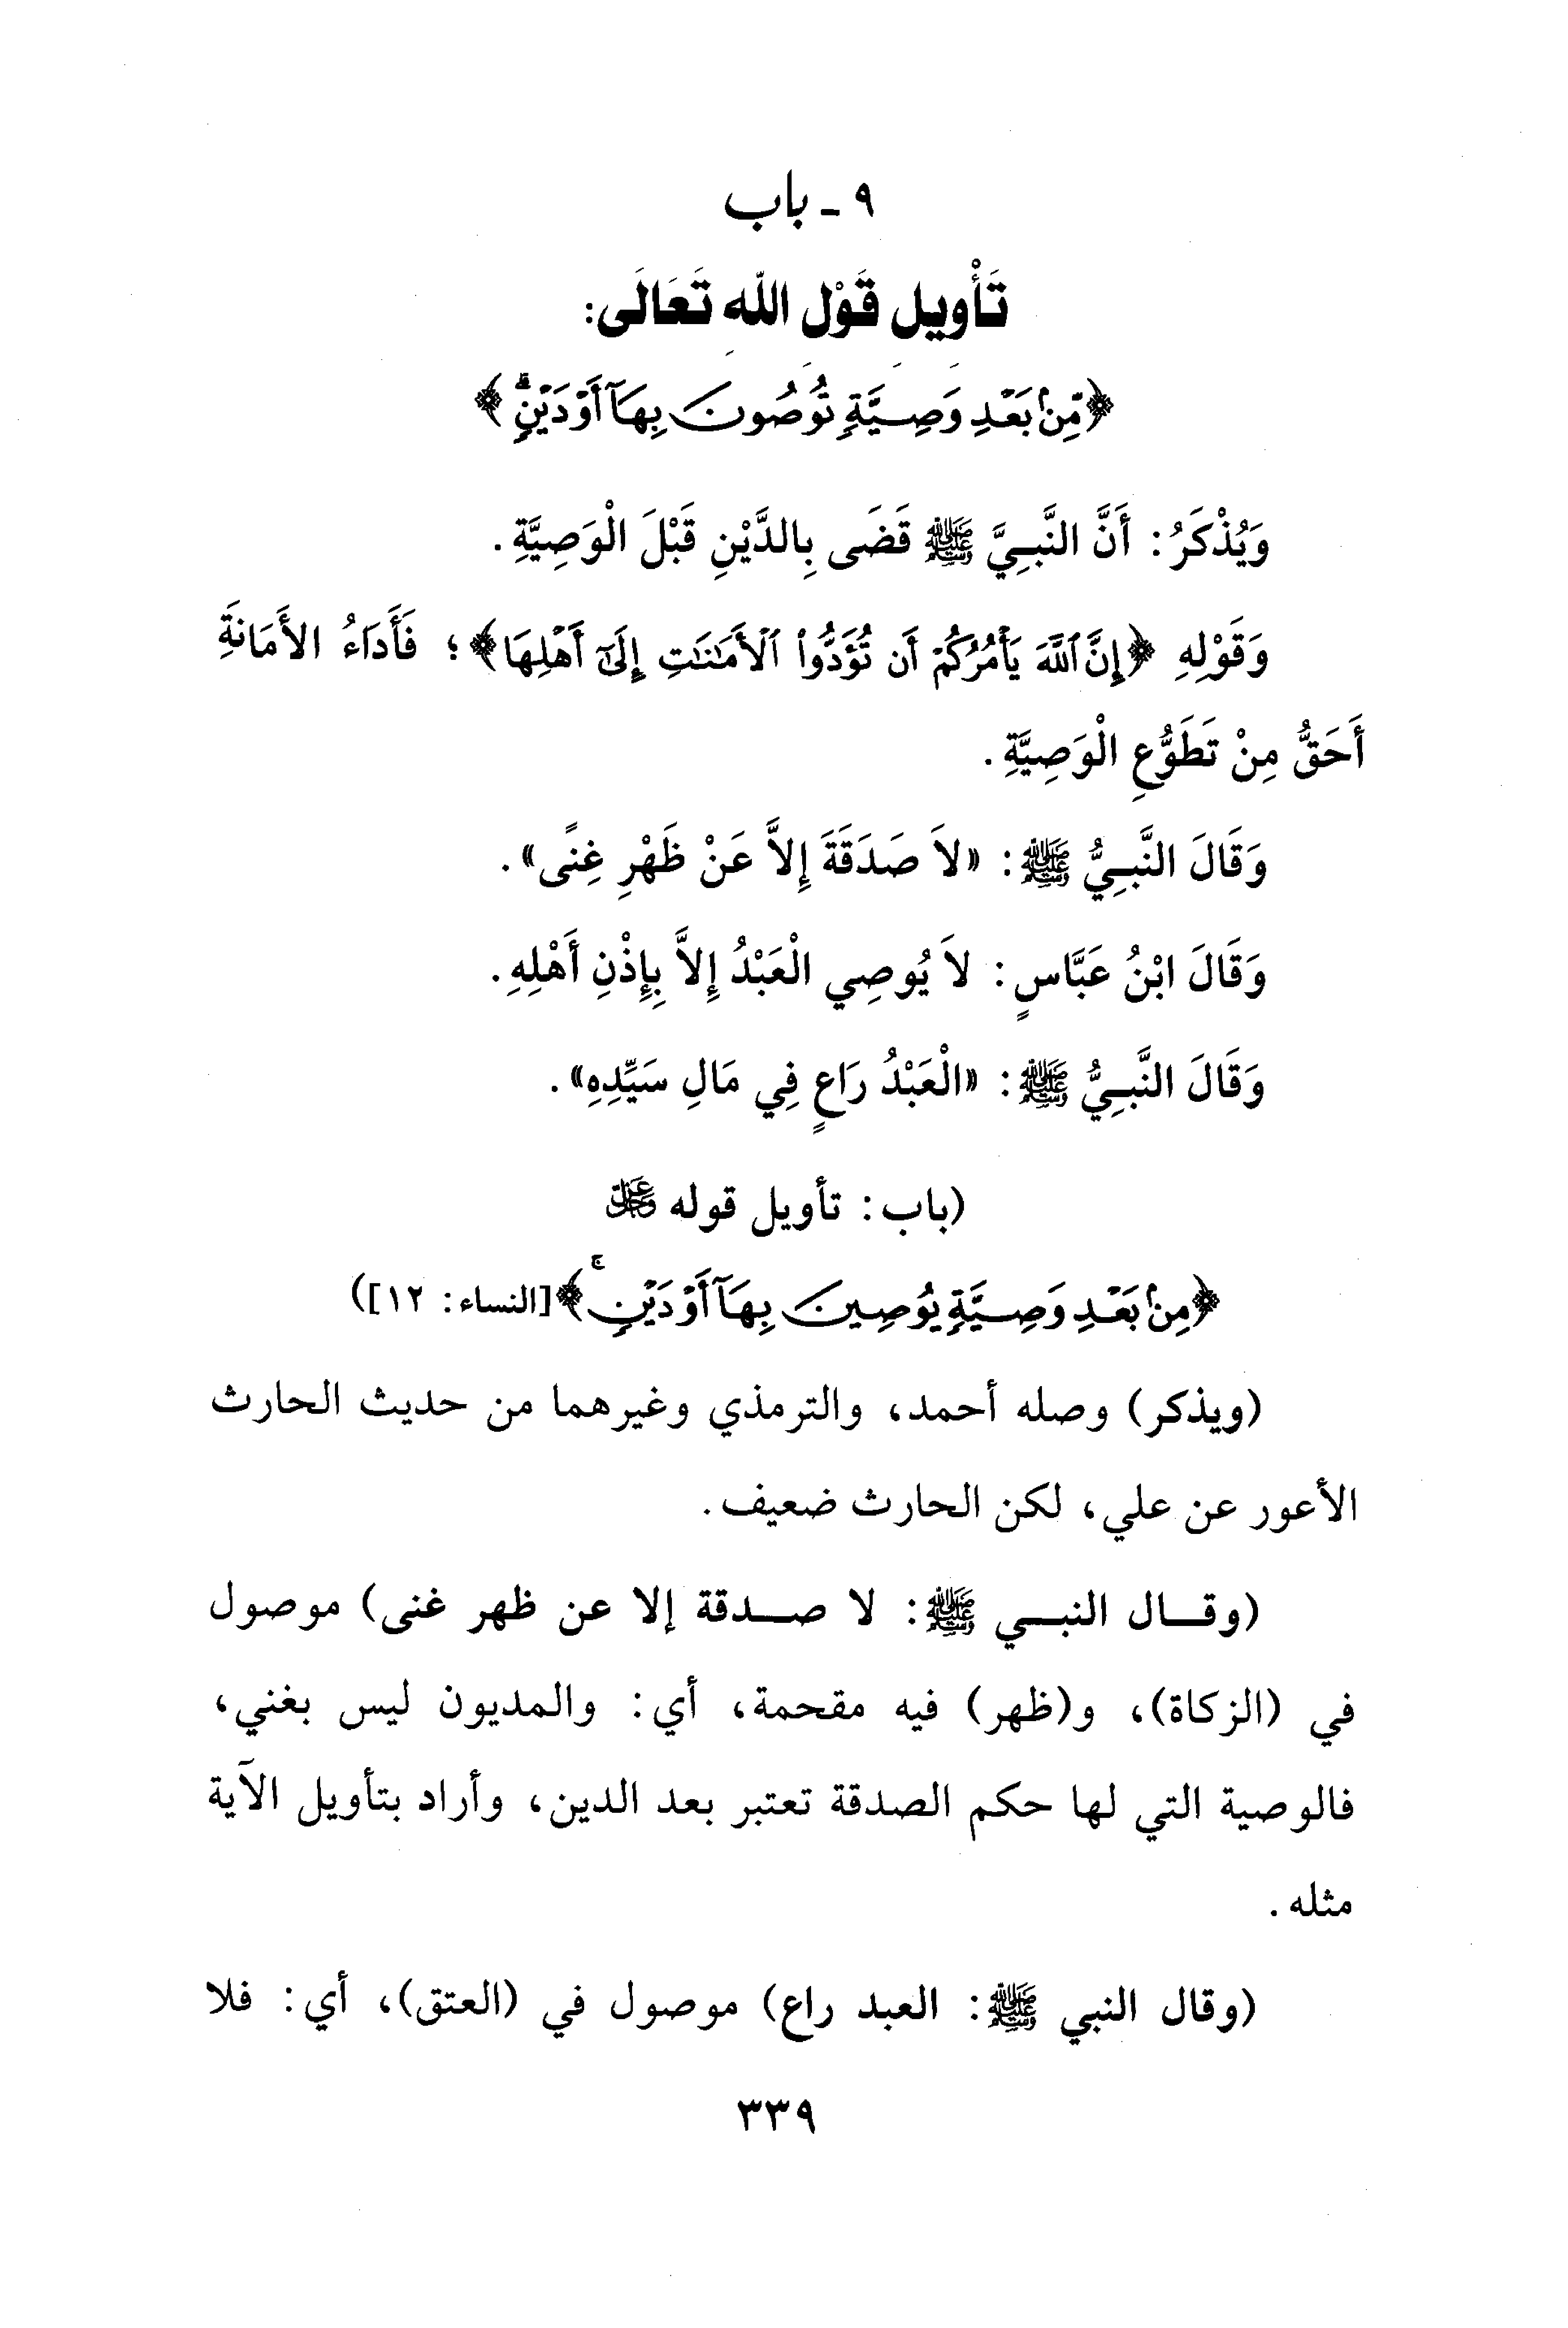 ٩ - باب
تَأْويل قَوْل اللّه تَعَالَى:
﴿مِّنۢ بَعۡدِ وَصِيَّةٖ تُوصُونَ بِهَآ أَوۡ دَيۡنٖۗ﴾
وَيُذْكَرُ: أَنَّ النَّبِيَّ ﷺ قَضَى بِالدَّيْنِ قَبْلَ الْوَصِيَّةِ.
وَقَوْلِهِ ﴿إِنَّ ٱللَّهَ يَأۡمُرُكُمۡ أَن تُؤَدُّواْ ٱلۡأَمَٰنَٰتِ إِلَىٰٓ أَهۡلِهَا﴾؛ فَأَدَاءُ الأَمَانَةِ
أَحَقُّ مِنْ تَطَوُّعِ الْوَصِيَّةِ.
وَقَالَ النَّبِيُّ ﷺ: «لاَ صَدَقَةَ إِلاَّ عَنْ ظَهْرِ غِنًى».
وَقَالَ ابْنُ عَبَّاسٍ: لاَ يُوصِي الْعَبْدُ إِلاَّ بِإِذْنِ أَهْلِهِ.
وَقَالَ النَّبِيُّ ﷺ: «الْعَبْدُ رَاعٍ فِي مَالِ سَيِّدِهِ».
(باب: تأويل قوله عَزَّ وَجَلَّ
﴿مِنۢ بَعۡدِ وَصِيَّةٖ يُوصِينَ بِهَآ أَوۡ دَيۡنٖۚ﴾ [النساء: ١٢])
(ويذكر) وصله أحمد، والترمذي وغيرهما من حديث الحارث
الأعور عن علي، لكن الحارث ضعيف.
(وقال النبي ﷺ: لا صدقة إلا عن ظهر غنى) موصول
في (الزكاة)، و(ظهر) فيه مقحمة، أي: والمديون ليس بغني،
فالوصية التي لها حكم الصدقة تعتبر بعد الدين، وأراد بتأويل الآية
مثله.
(وقال النبي ﷺ: العبد راع) موصول في (العتق)، أي: فلا
٣٣٩